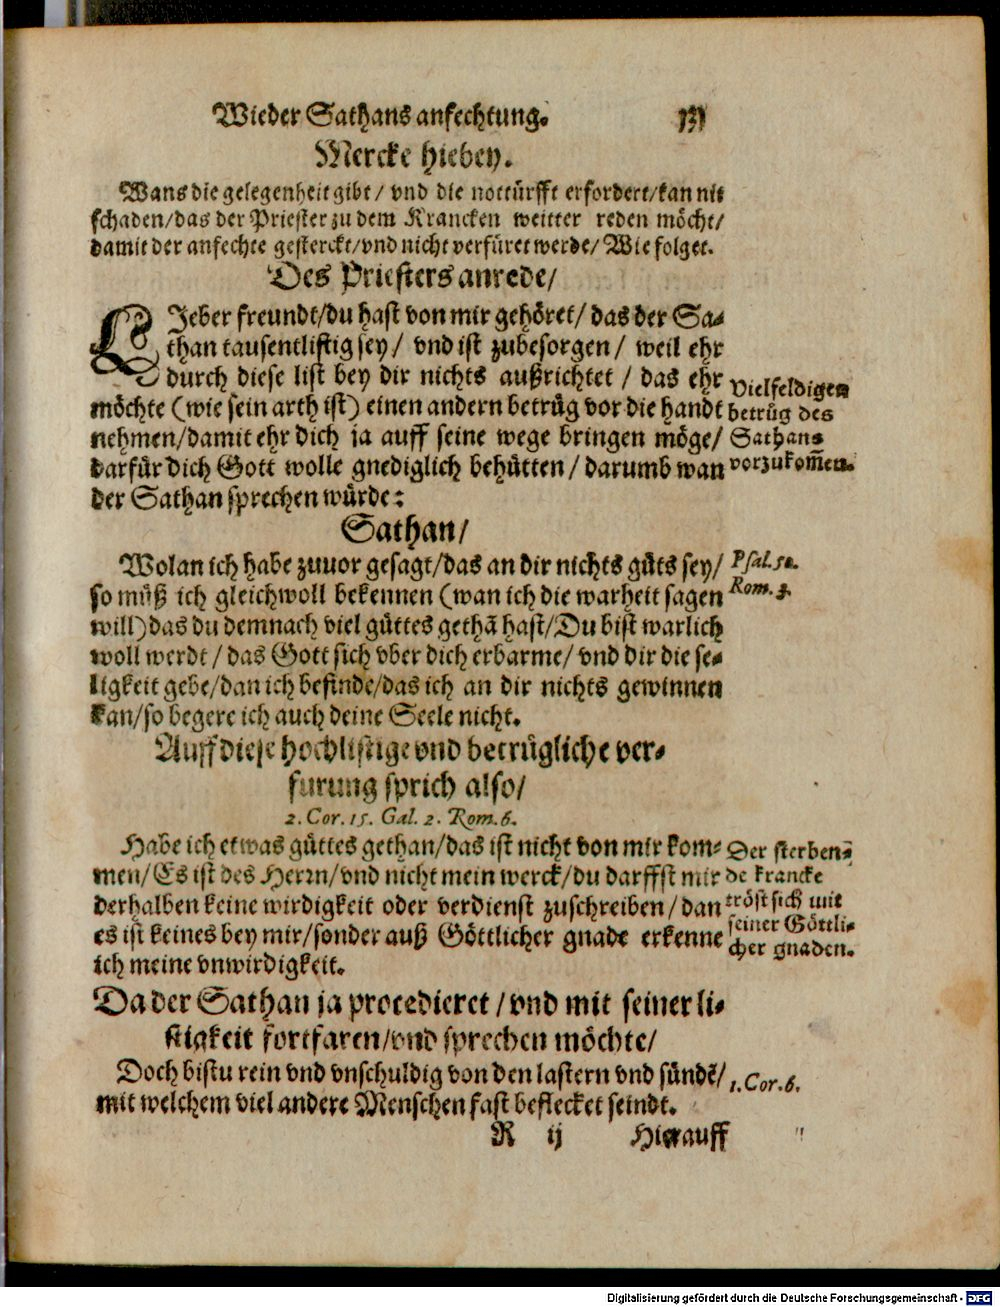 Wieder Sathans anfechtung. 131
Mercke hiebey.
Wans die gelegenheit gibt/ vnd die nottürfft erfordert/kan nit
schaden/das der Priester zu dem Krancken weitter reden möcht/
damit der anfechte gesterckt/vnd nicht verfüret werde/ Wie folget.
Des Priesters anrede/
LJeber freundt/du hast von mir gehöret/ das der Sa-
than tausentlistig sey/ vnd ist zubesorgen/ weil ehr
durch diese list bey dir nichts außrichtet / das ehr
möchte (wie sein arth ist) einen andern betrüg vor die handt
nehmen/damit ehr dich ja auff seine wege bringen möge/
darfür dich Gott wolle gnediglich behütten/ darumb wan
der Sathan sprechen würde:
Vielfeldigen
betrüg des
Sathans
vorzukom̃en.
Sathan/
Wolan ich habe zuuor gesagt/das an dir nichts güts sey/
so müß ich gleichwoll bekennen (wan ich die warheit sagen
will)das du demnach viel güttes gethã hast/Du bist warlich
woll werdt/das Gott sich vber dich erbarme/ vnd dir die se-
ligkeit gebe/dan ich befinde/das ich an dir nichts gewinnen
kan/so begere ich auch deine Seele nicht.
Psal.51.
Rom. 3.
Auff diese hochlistige vnd betrügliche ver-
furung sprich also/
2. Cor. 15. Gal. 2. Rom. 6.
Habe ich etwas güttes gethan/das ist nicht von mir kom-
men/Es ist des Herrn/vnd nicht mein werck/du darffst mir
derhalben keine wirdigkeit oder verdienst zuschreiben/dan
es ist keines bey mir/sonder auß Göttlicher gnade erkenne
ich meine vnwirdigkeit.
Der sterben-
de krancke
tröst sich mit
seiner Göttli-
cher gnaden.
Da der Sathan ja procedieret/vnd mit seiner li-
stigkeit fortfaren/vnd sprechen möchte/
Doch bistu rein vnd vnschuldig von den lastern vnd sündẽ/
mit welchem viel andere Menschen fast beflecket seindt.
1. Cor. 6.
R ij Hierauff
Digitalisierung gefördert durch die Deutsche Forschungsgemeinschaft - DFG